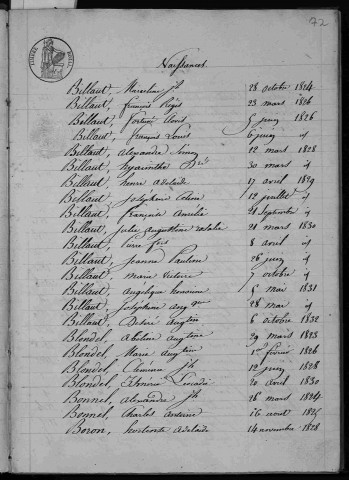 72
Naissances
Billaut, Marceline jh 28 octobre 1824
Billaut, françois Régis 23 mars 1826
Billaut, fortuné 5 juin 1826
Billaut, françois Louis 6 juin id
Billaut, alexandre Simon 12 mars 1828
Billaut, hyacinthe Dré 30 mars id
Billaut, henri adelaide 17 avril 1829
Billaut, Joséphine 12 juillet id
Billaut, françoise Amelie 21 Septembre id
Billaut, julie augustine 21 mars 1830
Billaut, Pierre frois 8 avril id
Billaut, Jeanne Pauline 26 juin id
Billaut, Marie Victoire 5 octobre id
Billaut, angelique honorine 5 mai 1831
Billaut, joséphine aug 28 mai id
Billaut, Désiré Augtin 6 octobre 1832
Blondel, Abeline Augtine 29 mars 1823
Blondel, Marie Augtine 1er février 1826
Blondel, Clémence jh 12 juin 1828
Blondel, Léocadie 20 avril 1830
Bonnel, alexandre jh 26 mars 1824
Bonnel, Charles antoine 16 août
Boron, hortente adelaide 14 novembre 1828